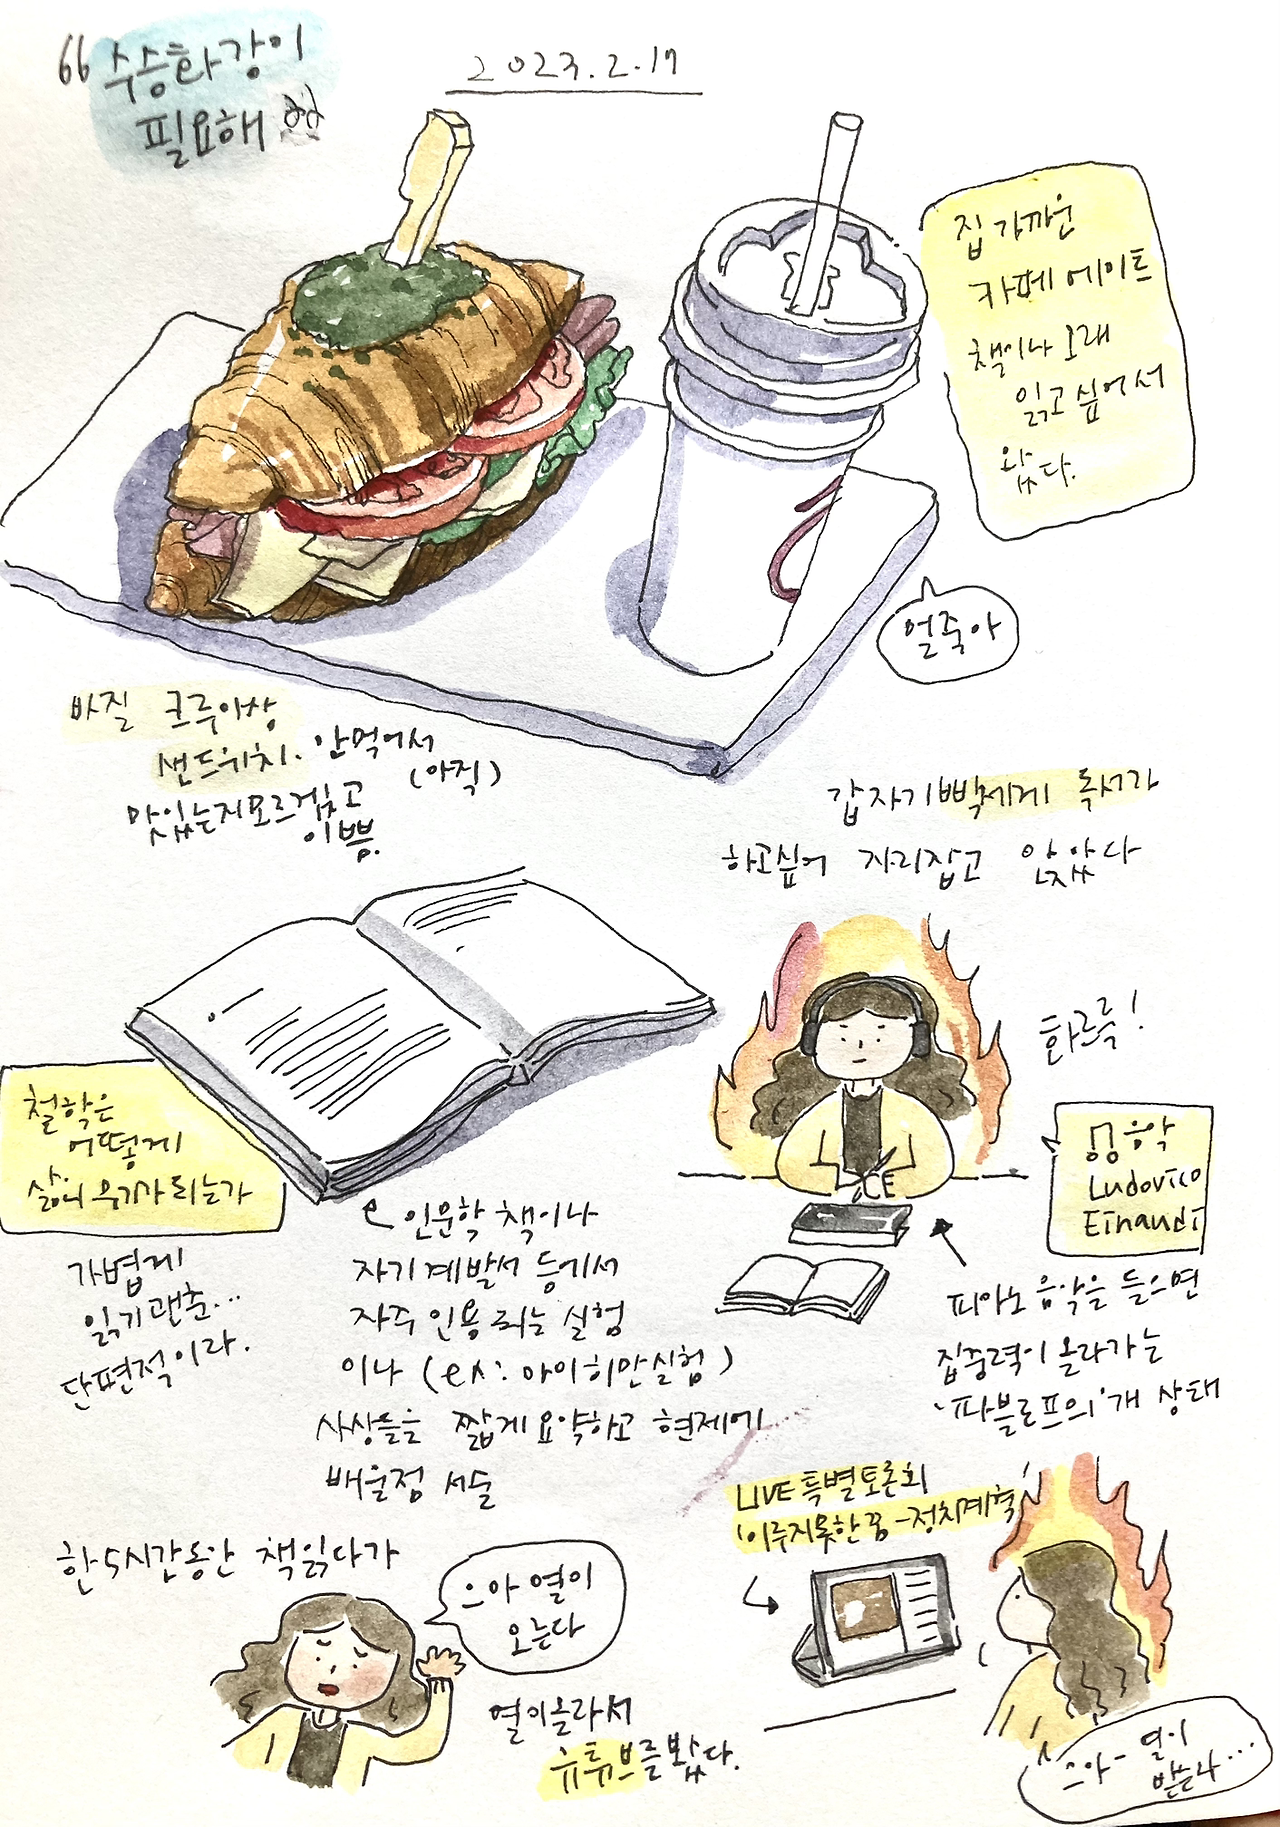 수승화강이
필요해
2023.2.17
집 가까운
카페 에이트
책이나 오래
읽고 싶어서
왔다.
얼죽아
바질 크루아상
샌드위치. 안먹어서
(아직)
맛있는지모르겠고
이쁨.
갑자기 빡세게 독서가
하고싶어 자리잡고 앉았다
화르륵!
음악
Ludovico
Einaudi
피아노 음악을 들으면
집중력이 올라가는
'파블로프의'개 상태
철학은
어떻게
삶의 무기가 되는가
가볍게
읽기괜춘...
단편적이라.
인문학 책이나
자기계발서 등에서
자주 인용되는 실험
이나 (ex: 아이히만실험)
사상들을 짧게요약하고 현제에
배울점 서술
한 5시간동안 책읽다가
으아 열이
오른다
열이올라서
유튜브를봤다.
LIVE 특별토론회
'이루지못한 꿈-정치개혁'
으아- 열이
받는다...